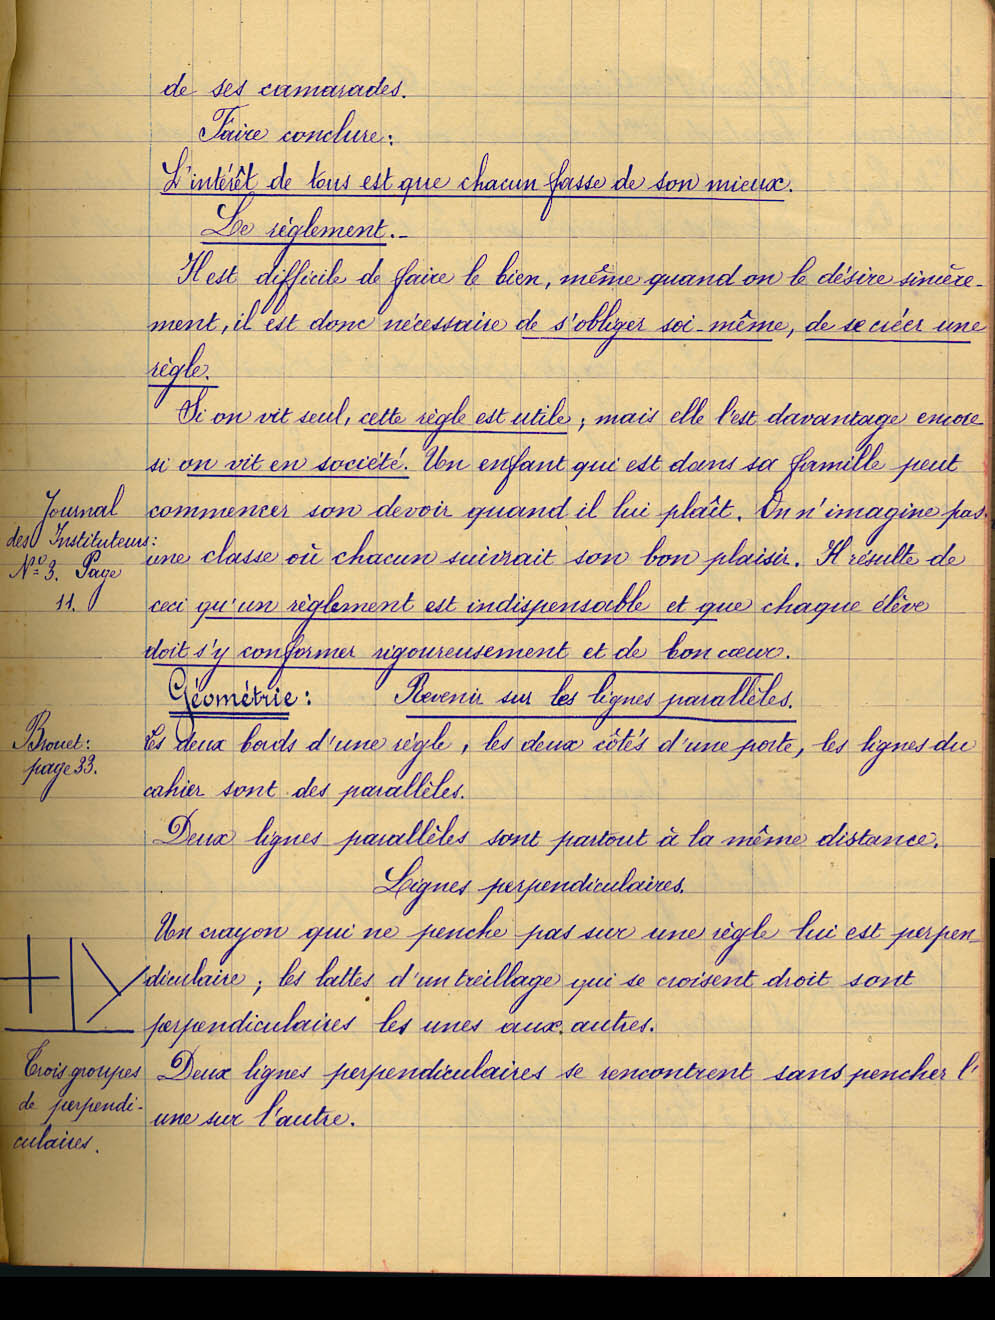 de ses camarades.
Faire conclure :
L'intérêt de tous est que chacun fasse de son mieux.
Le réglement. -
Il est difficile de faire le bien, même quand on le désire sincère-
ment, il est donc nécessaire de s'obliger soi-même, de se créer une
règle.
Si on vit seul, cette règle est utile ; mais elle l'est davantage encore
si on vit en société. Un enfant qui est dans sa famille peut
Journal
commencer son devoir quand il lui plaît. On n'imagine pas
des Instituteurs :
une classe où chacun suivrait son bon plaisir. Il résulte de
N° 3. Page
11.
ceci qu'un règlement est indispensable et que chaque élève
doit s'y conformer rigoureusement et de bon cœur.
Géométrie : Revenir sur les lignes parallèles.
Brouet :
Les deux bords d'une règle, les deux côtés d'une porte, les lignes du
page 33.
cahier sont des parallèles.
Deux lignes parallèles sont partout à la même distance.
Lignes perpendiculaires.
Un crayon qui ne penche pas sur une règle lui est perpen-
diculaire ; les lattes d'un treillage qui se croisent droit sont
perpendiculaires les unes aux autres.
Trois groupes
de perpendi-
culaires.
Deux lignes perpendiculaires se rencontrent sans pencher l'
une sur l'autre.